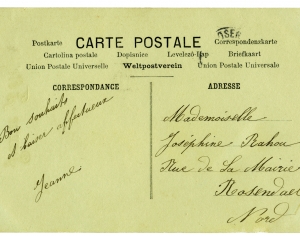 CARTE POSTALE
Postkarte
Correspondenskarte
Cartolina postale Dopisnice Levelező-lap Briefkaart
Union Postale Universelle Weltpostverein Union Postale Universale
CORRESPONDANCE
Bon souhaits
et baiser affectueux
Jeanne
ADRESSE
Mademoiselle
Joséphine Rahou
Rue de La Mairie
Rosendael
Nord